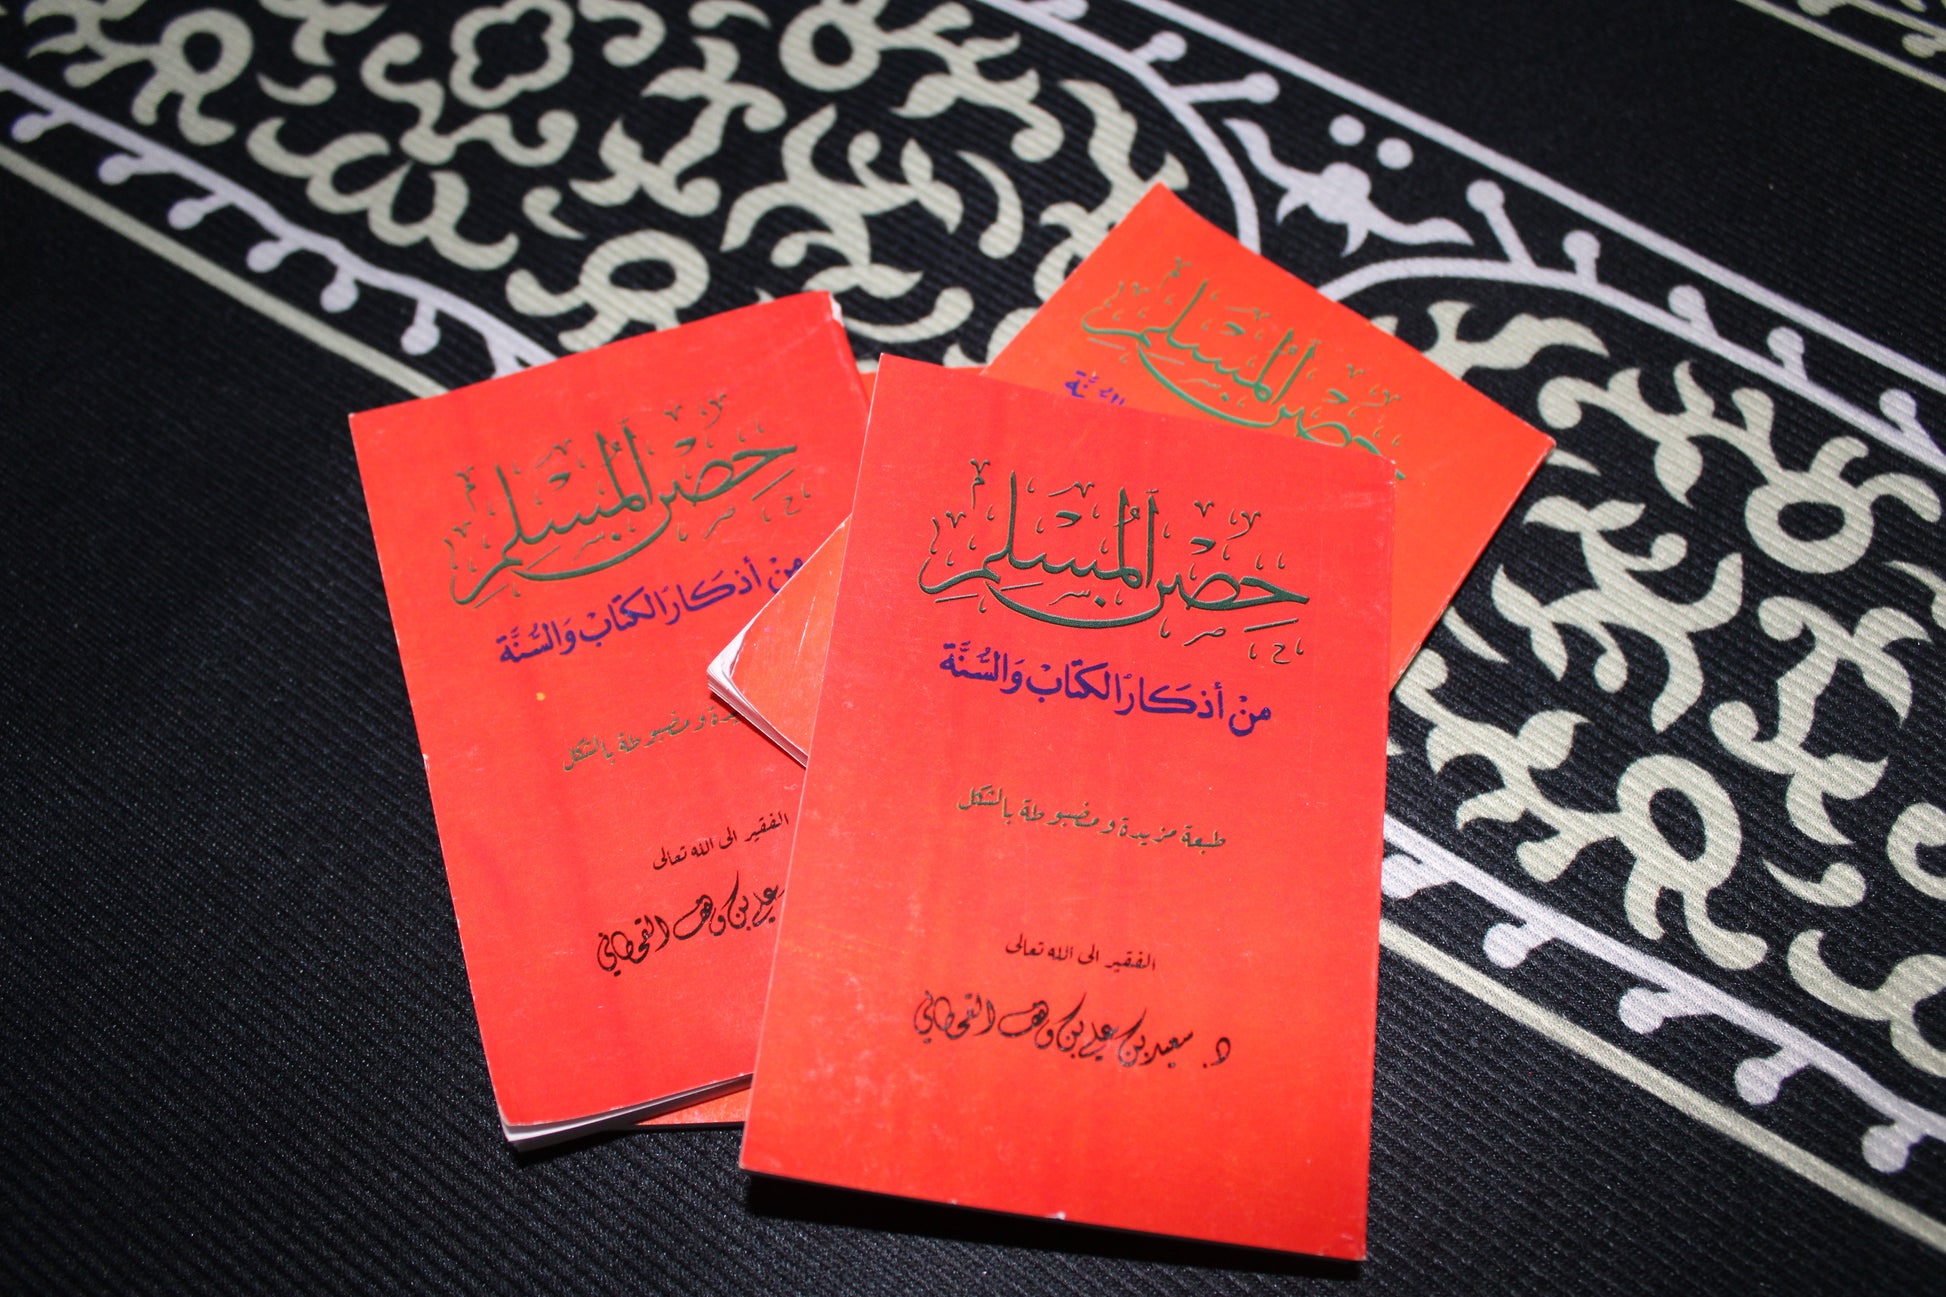 حِصْنُ المُسْلِم
مِنْ أذكَارِ الكِتَابْ وَالسُّنَّة
طبعة مزيدة ومضبوطة بالشكل
الفقير الى الله تعالى
د. سعيد بن علي بن وهف القحطاني
حِصْنُ المُسْلِم
مِنْ أذكَارِ الكِتَابْ وَالسُّنَّة
ومضبوطة بالشكل
الفقير الى الله تعالى
علي بن وهف القحطاني
حِصْنُ المُسْلِم
السُّنَّة